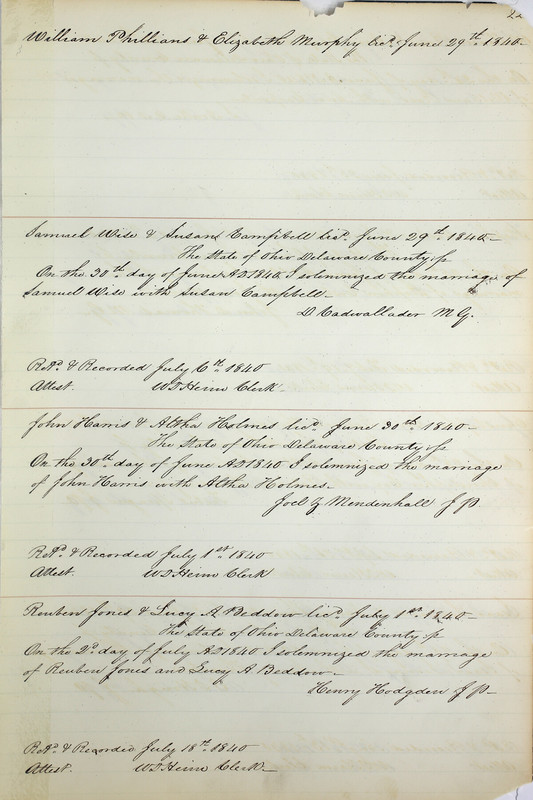 William Phillians & Elizabeth Murphy licd. June 29th. 1840-
Samuel Wise & Susan Campbell licd. June 29th. 1840-
The State of Ohio Delaware County ss
On the 30th day of June AD1840 I solemnized the marriage of
Samuel Wise with Susan Campbell-
D Cadwallader M G.
Retd. & Recorded July 6th 1840
Attest. Clerk-
John Harris & Altha Holmes licd. June 30th 1840-
The State of Ohio Delaware County ss
On the 30th day of June AD1840 I solemnized the marriage
of John Harris with Altha Holmes-
Joel Z Mendenhall J P.
Retd. & Recorded July 1st. 1840
Attest. Clerk
Reuben Jones & Lucy A Beddow licd. July 1st. 1840-
The State of Ohio Delaware County ss
On the 2d. day of July AD1840 I solemnized the marriage
of Reuben Jones and Lucy A Beddow-
Henry Hodgden J P-
Retd. & Recorded July 18th. 1840
Attest. Clerk-